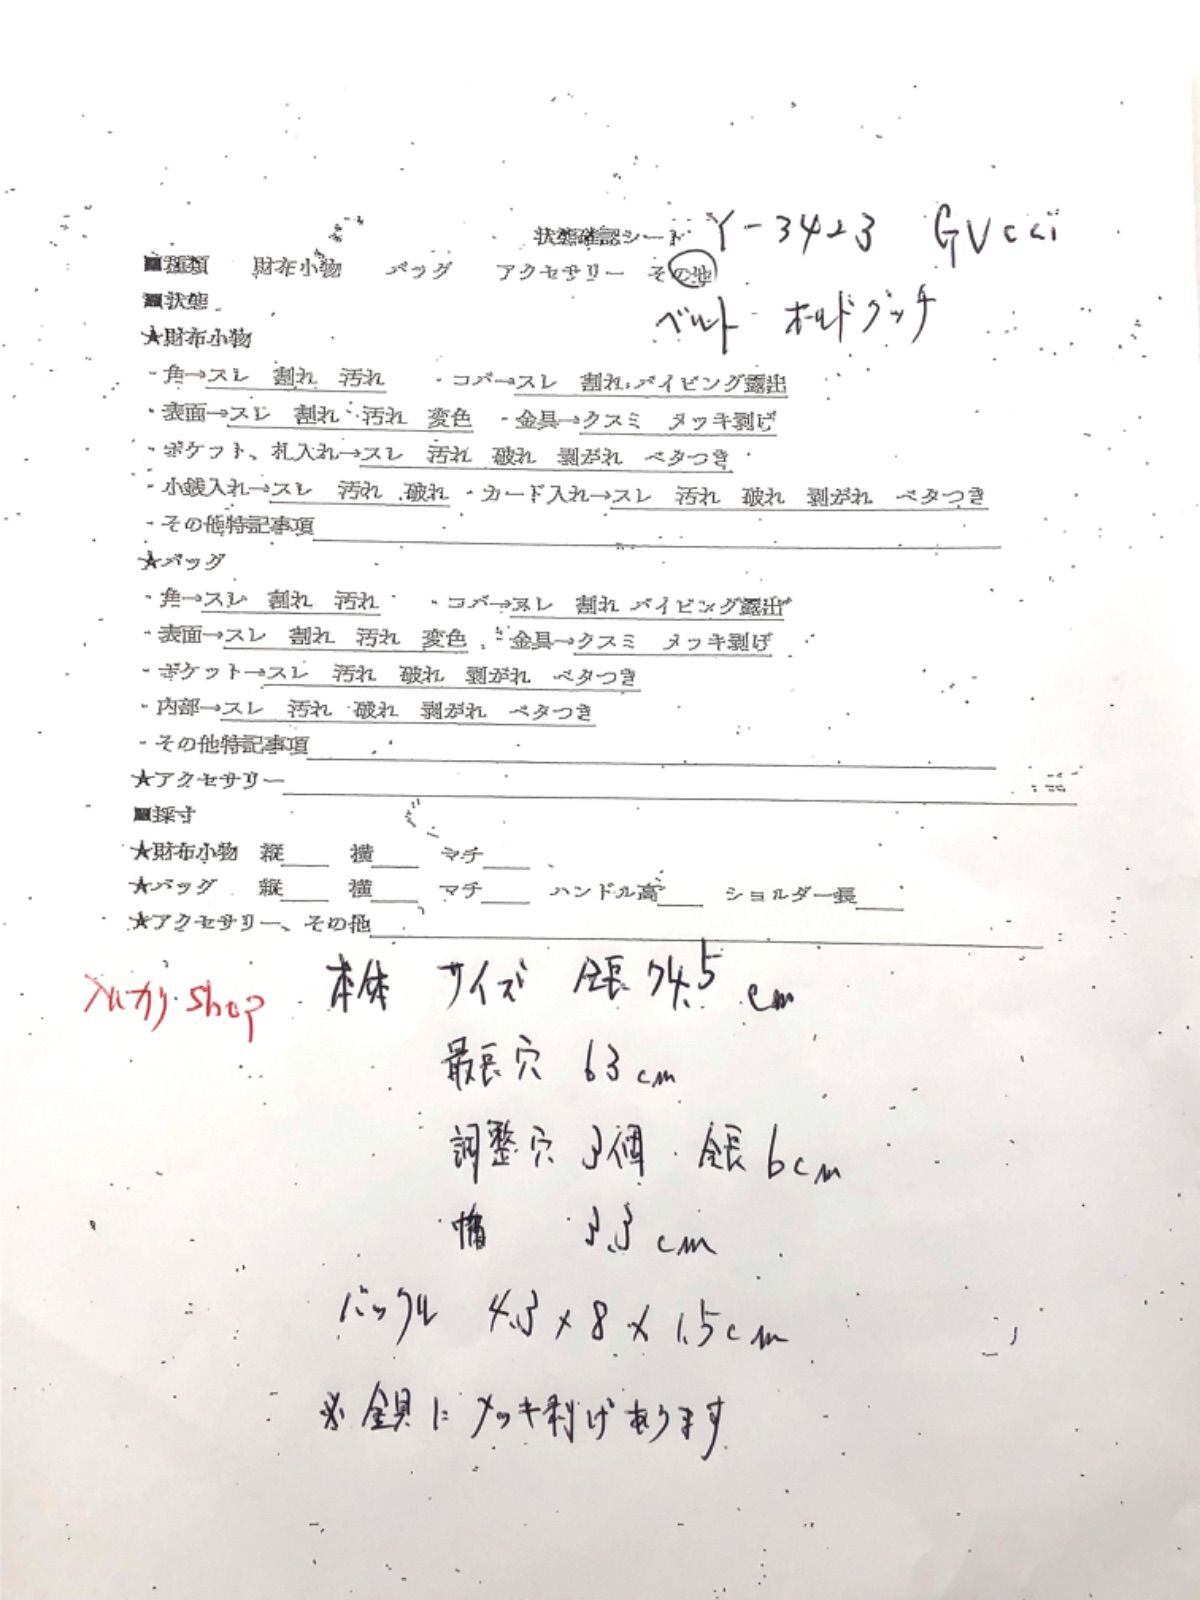 状態確認シート Y-3423 GUcci
■種類 財布小物 バッグ アクセサリー その他
ベルト オールドグッチ
■状態
★財布小物
・角→スレ 割れ 汚れ ・コバ→スレ 割れ パイピング露出
・表面→スレ 割れ 汚れ 変色 ・金具→クスミ メッキ剥げ
・ポケット、札入れ→スレ 汚れ 破れ 剥がれ ベタつき
・小銭入れ→スレ 汚れ 破れ ・カード入れ→スレ 汚れ 破れ 剥がれ ベタつき
・その他特記事項
★バッグ
・角→スレ 割れ 汚れ ・コバ→スレ 割れ パイピング露出
・表面→スレ 割れ 汚れ 変色 ・金具→クスミ メッキ剥げ
・ポケット→スレ 汚れ 破れ 剥がれ ベタつき
・内部→スレ 汚れ 破れ 剥がれ ベタつき
・その他特記事項
★アクセサリー
■採寸
★財布小物 縦 横 マチ
★バッグ 縦 横 マチ ハンドル高 ショルダー長
★アクセサリー、その他
メルカリ shop 本体 サイズ 全長 74.5 cm
最長穴 63cm
調整穴 3個 全長 6cm
幅 3.3 cm
バックル 4.3×8×1.5cm
※金具に メッキ剥げあります